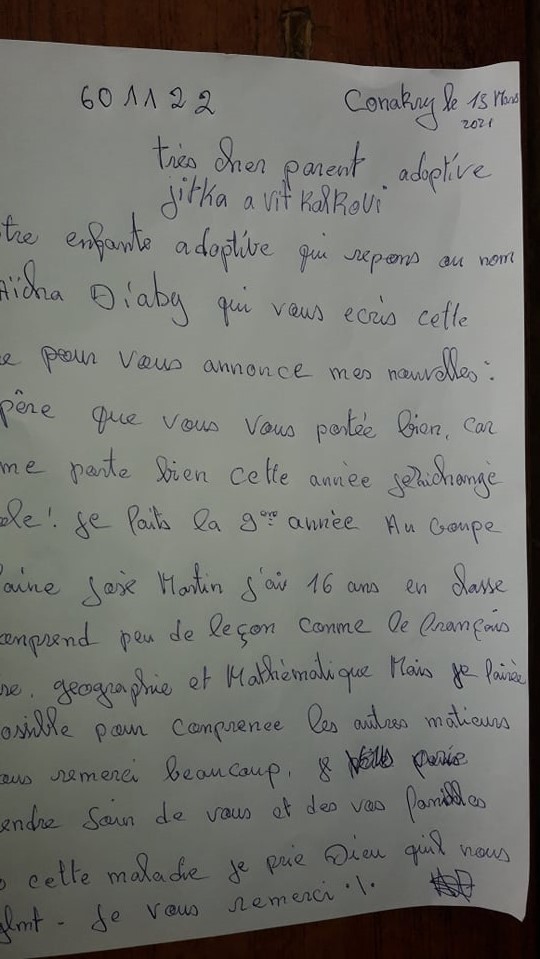 6011122
Conakry le 13 Mars
2021
très cher parent adoptive
jitka a vit kalkovi
tre enfante adoptive qui repons au nom
Aïcha Diaby qui vous ecris cette
e pour vous annonce mes nouvelles:
père que vous vous portée bien, car
me porte bien cette année
ole! je faits la 9ème année Au Goupe
aine José Martin j'ai 16 ans en classe
omprend peu de leçon comme le français
re, geographie et Mathèmatique Mais je
ossible pour comprenee les autres matieurs
ous remerci beaucoup.
endre soin de vous et des vos familles
cette maladie je prie Dieu quil nous
glmt - je vous remerci ./.